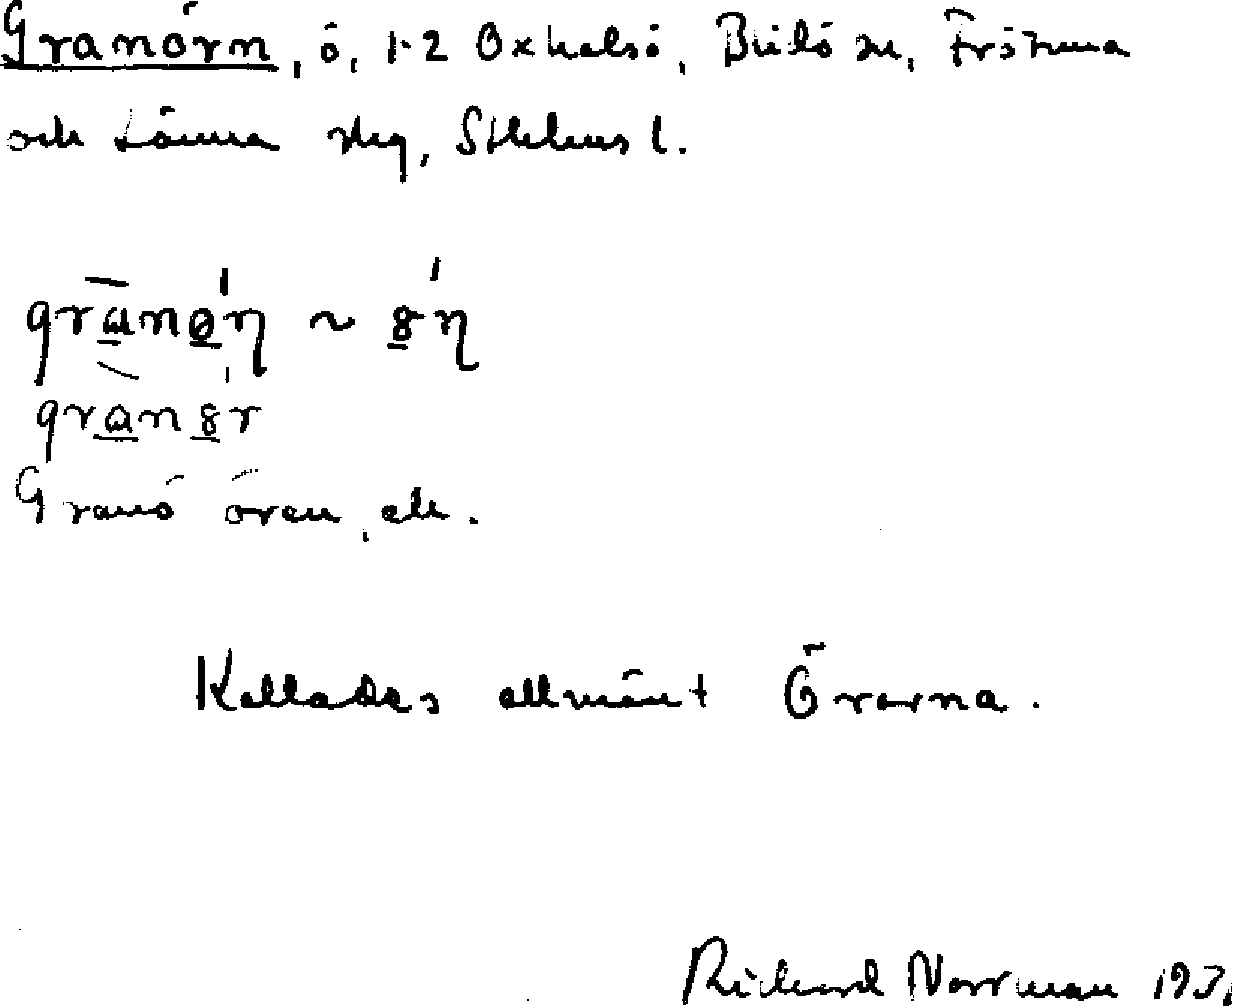 Granörn, ö, 1-2 Oxhalsö, Blidö sn, Frötuna
och Länna skg, Sthlms l.
Granö ören, ek.
Kallades allmänt Örarna.
Richard Norrman